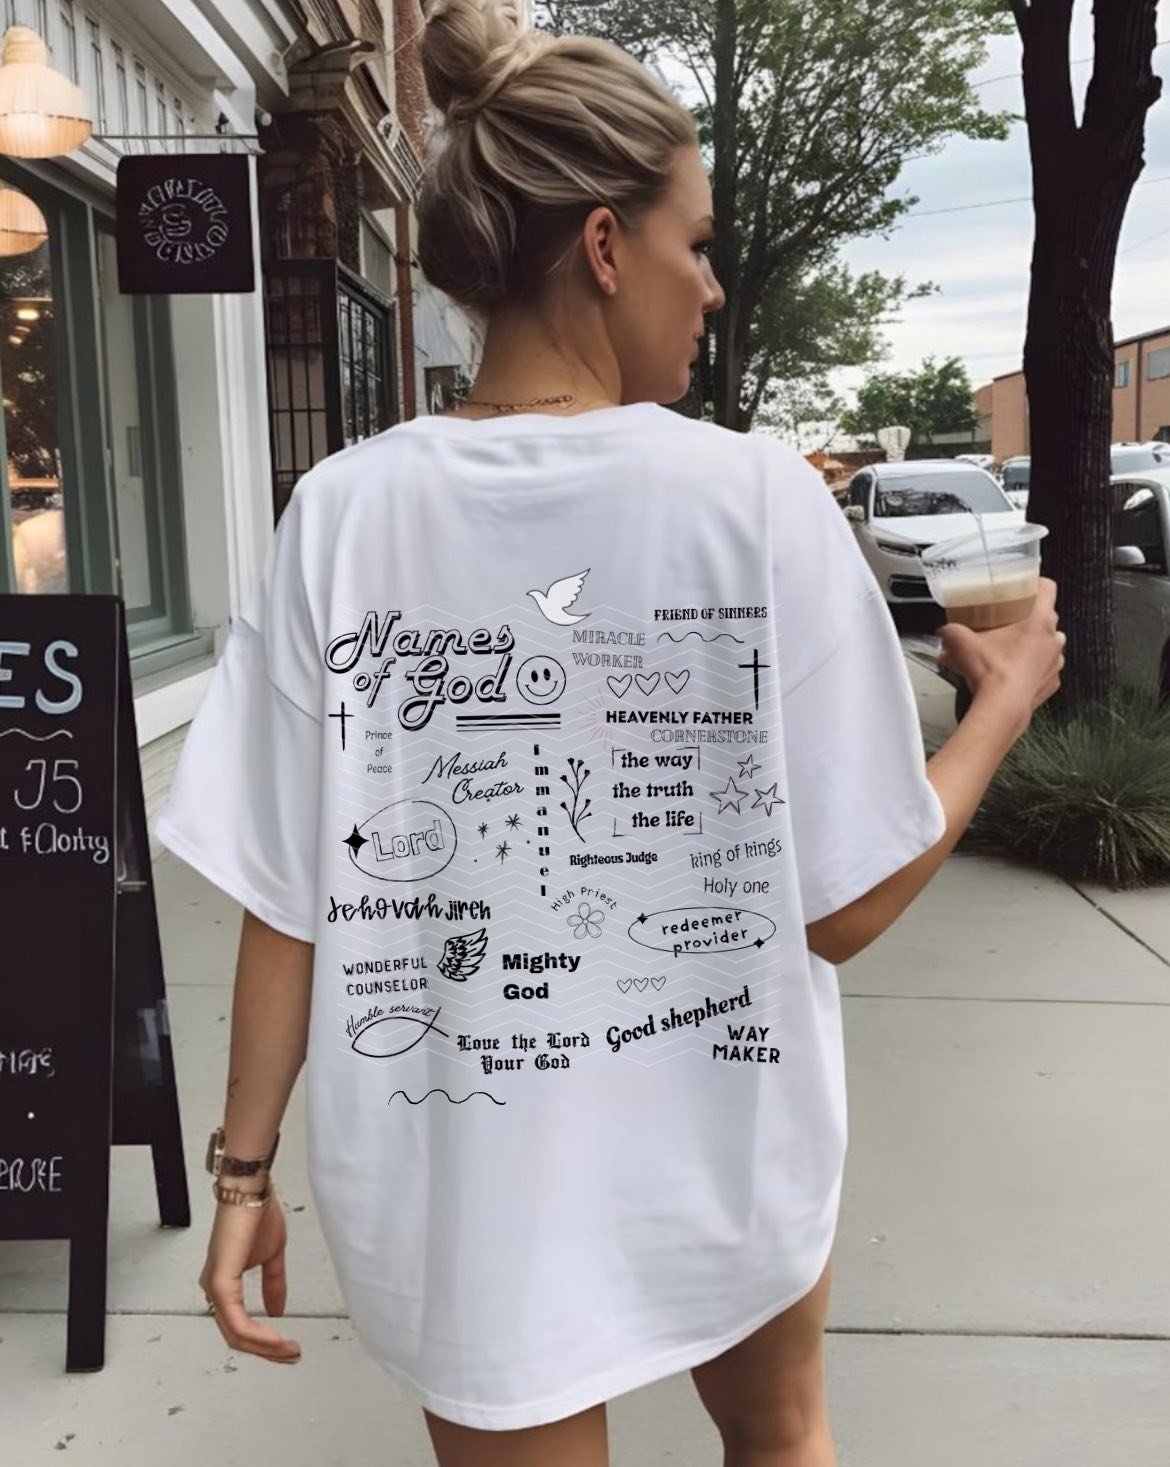 ES
J5
Names
of God
FRIEND OF SINNERS
MIRACLE
WORKER
HEAVENLY FATHER
CORNERSTONE
Prince
of
Peace
Messiah
Creator
immanuel
the way
the truth
the life
Lord
Righteous Judge
king of kings
Holy one
High Priest
Jehovah jireh
redeemer
provider
WONDERFUL
COUNSELOR
Mighty
God
Humble servant
Love the Lord
Your God
Good shepherd
WAY
MAKER